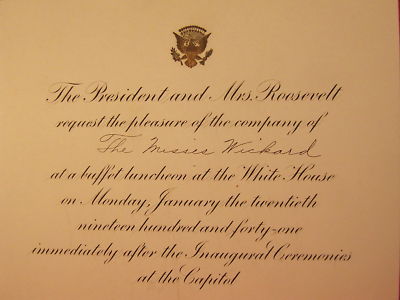 The President and Mrs. Roosevelt
request the pleasure of the company of
The Misses Wickard
at a buffet luncheon at the White House
on Monday, January the twentieth
nineteen hundred and forty-one
immediately after the Inaugural Ceremonies
at the Capitol